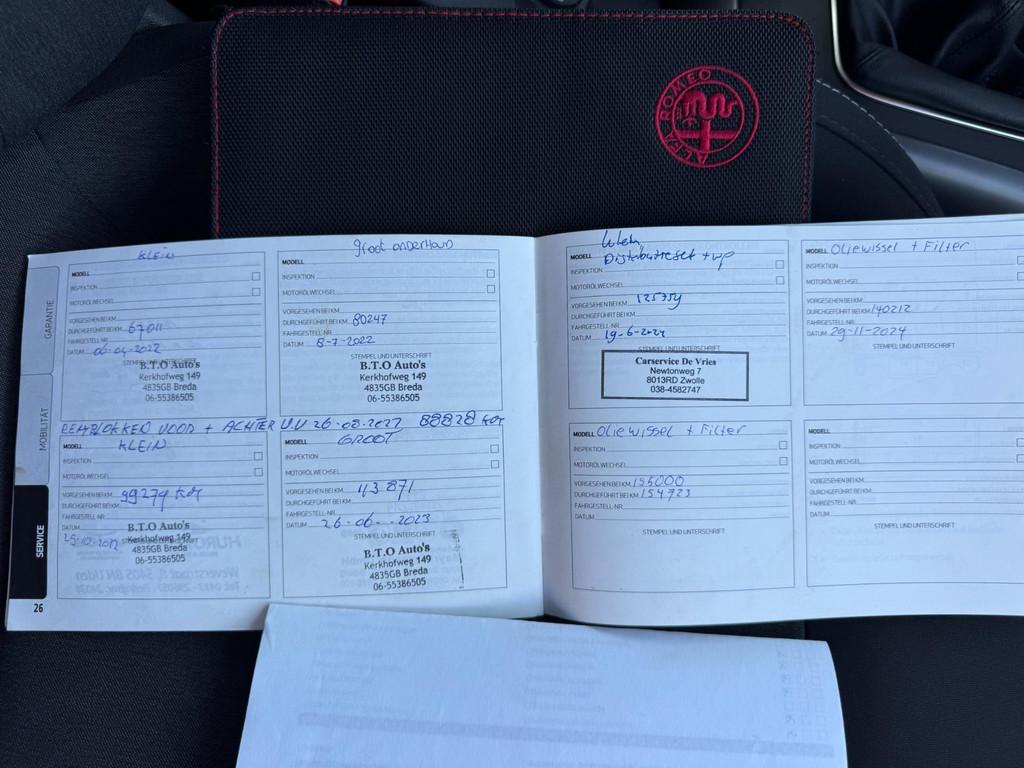 ALFA ROMEO
GARANTIE
MOBILITÄT
SERVICE
KLEIN
MODELL
INSPEKTION
MOTORÖLWECHSEL
VORGESEHEN BEI KM
DURCHGEFÜHRT BEI KM 67011
FAHRGESTELL-NR.
DATUM 06-04-2022
B.T.O Auto's
Kerkhofweg 149
4835GB Breda
06-55386505
groot onderHoud
MODELL
INSPEKTION
MOTORÖLWECHSEL
VORGESEHEN BEI KM
DURCHGEFÜHRT BEI KM 80247
FAHRGESTELL-NR.
DATUM 8-7-2022
STEMPEL UND UNTERSCHRIFT
B.T.O Auto's
Kerkhofweg 149
4835GB Breda
06-55386505
REMBLOKKEN VOOR + ACHTER 88828 km
MODELL KLEIN
INSPEKTION
MOTORÖLWECHSEL
VORGESEHEN BEI KM 99279 km
DURCHGEFÜHRT BEI KM
FAHRGESTELL-NR.
DATUM
B.T.O Auto's
Kerkhofweg 149
4835GB Breda
06-55386505
MODELL GROOT
INSPEKTION
MOTORÖLWECHSEL
VORGESEHEN BEI KM 113871
DURCHGEFÜHRT BEI KM
FAHRGESTELL-NR.
DATUM 26-06-2023
STEMPEL UND UNTERSCHRIFT
B.T.O Auto's
Kerkhofweg 149
4835GB Breda
06-55386505
26
MODELL Distributieset + wp
INSPEKTION
MOTORÖLWECHSEL
VORGESEHEN BEI KM
DURCHGEFÜHRT BEI KM
FAHRGESTELL-NR.
DATUM 19-6-2024
STEMPEL UND UNTERSCHRIFT
Carservice De Vries
Newtonweg 7
8013RD Zwolle
038-4582747
MODELL Oliewissel + Filter
INSPEKTION
MOTORÖLWECHSEL
VORGESEHEN BEI KM
DURCHGEFÜHRT BEI KM 140212
FAHRGESTELL-NR.
DATUM 29-11-2024
STEMPEL UND UNTERSCHRIFT
MODELL Oliewissel + Filter
INSPEKTION
MOTORÖLWECHSEL
VORGESEHEN BEI KM 155000
DURCHGEFÜHRT BEI KM 154723
FAHRGESTELL-NR.
DATUM
STEMPEL UND UNTERSCHRIFT
MODELL
INSPEKTION
MOTORÖLWECHSEL
VORGESEHEN BEI KM
DURCHGEFÜHRT BEI KM
FAHRGESTELL-NR.
DATUM
STEMPEL UND UNTERSCHRIFT